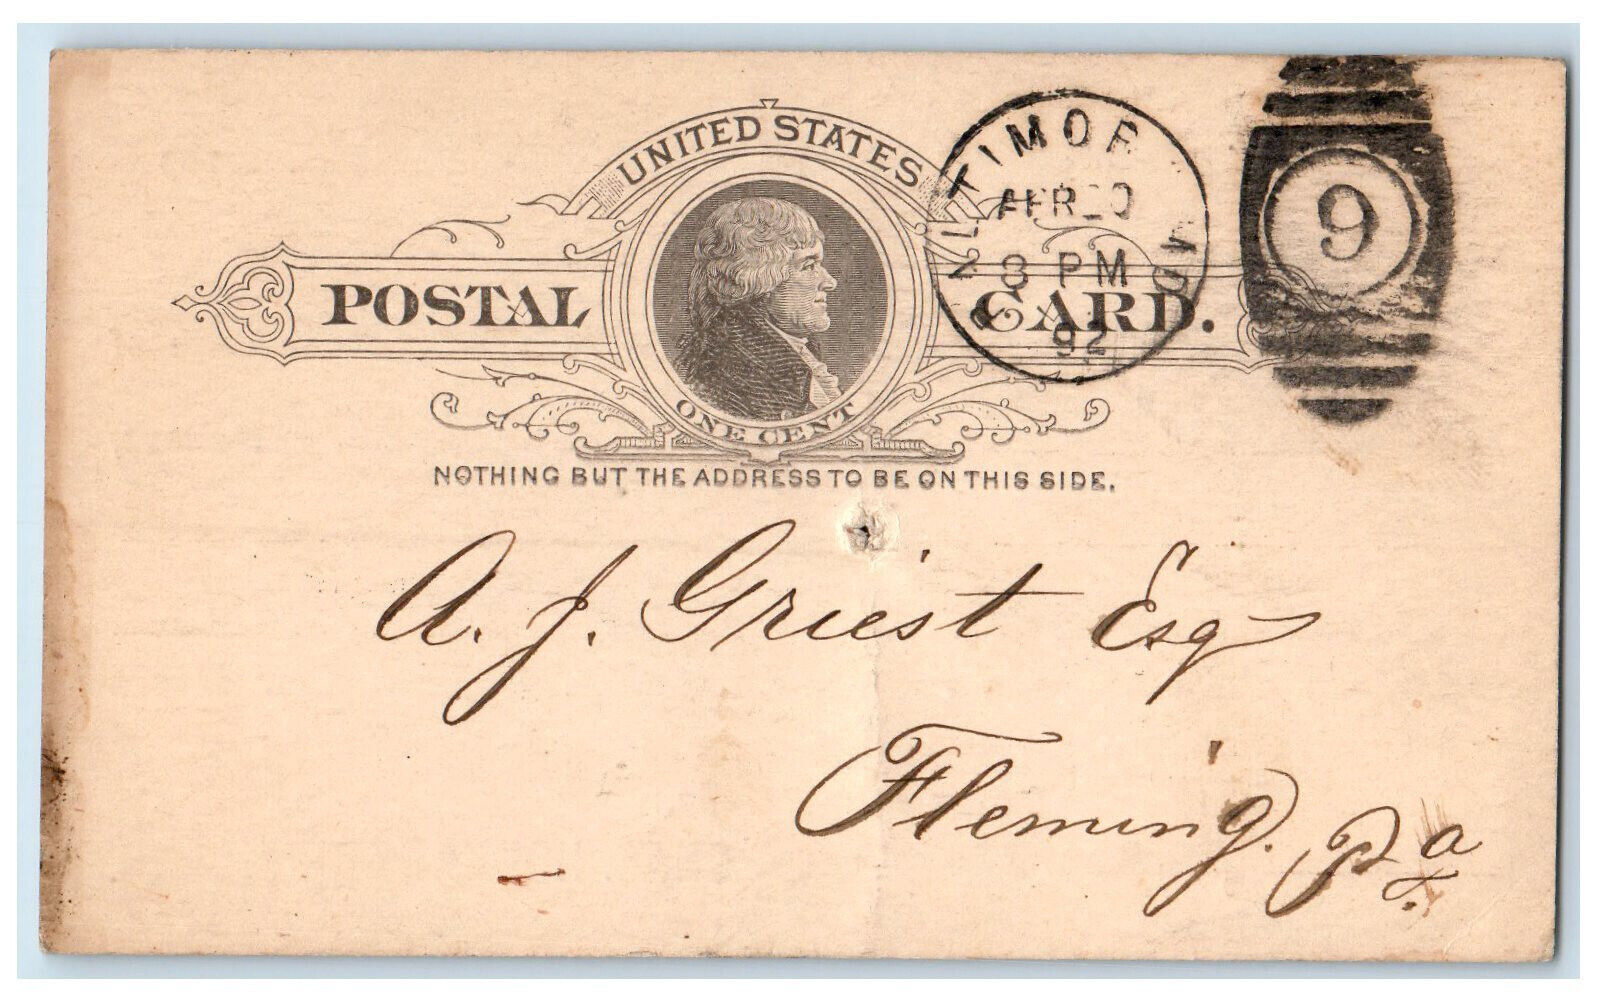 UNITED STATES
POSTAL CARD.
ONE CENT
NOTHING BUT THE ADDRESS TO BE ON THIS SIDE.
ALTIMOR MD
APR 20
8 PM
92
9
A. J. Griest Esq
Fleming. Pa.